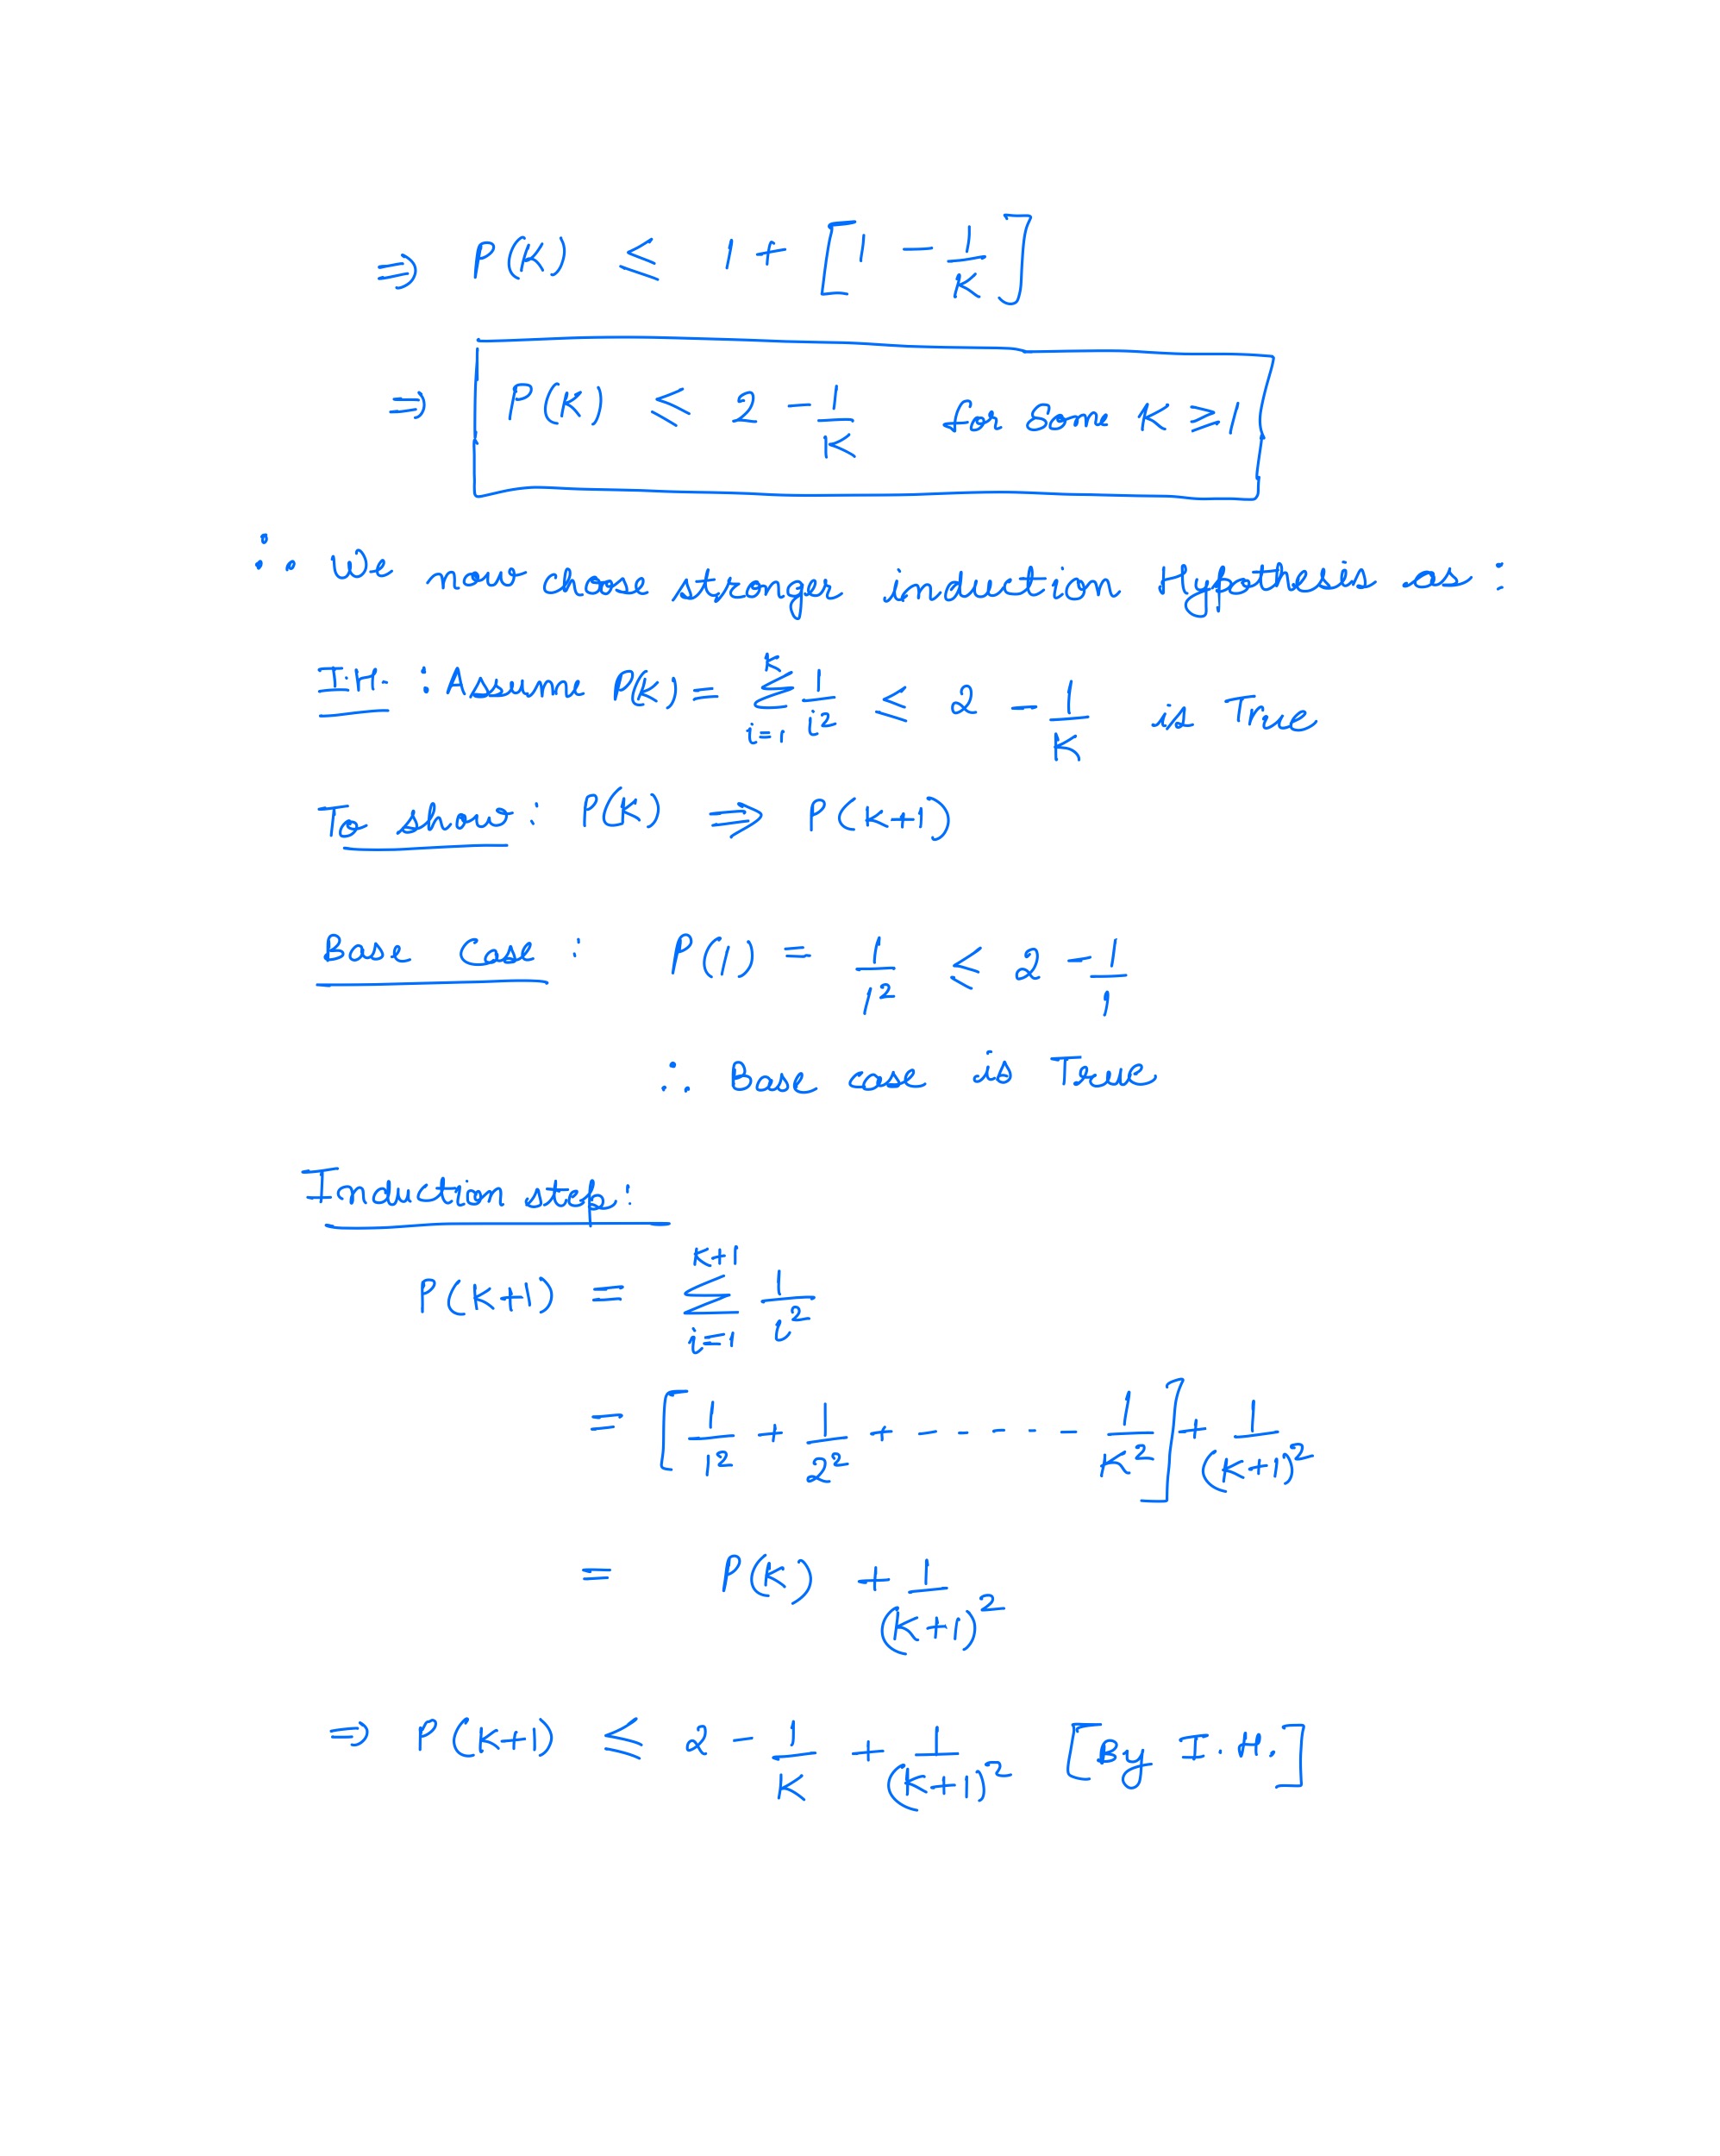 ⇒ P(K) ≤ 1 + [1 - 1/K]
⇒ P(K) ≤ 2 - 1/K for some K ≥ 1
∴ We now chose stronger induction Hypothesis as :
I.H. : Assume P(K) = ∑_{i=1}^{K} 1/i² ≤ 2 - 1/K is True
To show: P(K) ⇒ P(K+1)
Base Case : P(1) = 1/1² ≤ 2 - 1/1
∴ Base case is True
Induction step:
P(K+1) = ∑_{i=1}^{K+1} 1/i²
= [1/1² + 1/2² + - - - - - - 1/K²] + 1/(K+1)²
= P(K) + 1/(K+1)²
⇒ P(K+1) ≤ 2 - 1/K + 1/(K+1)² [By I.H.]